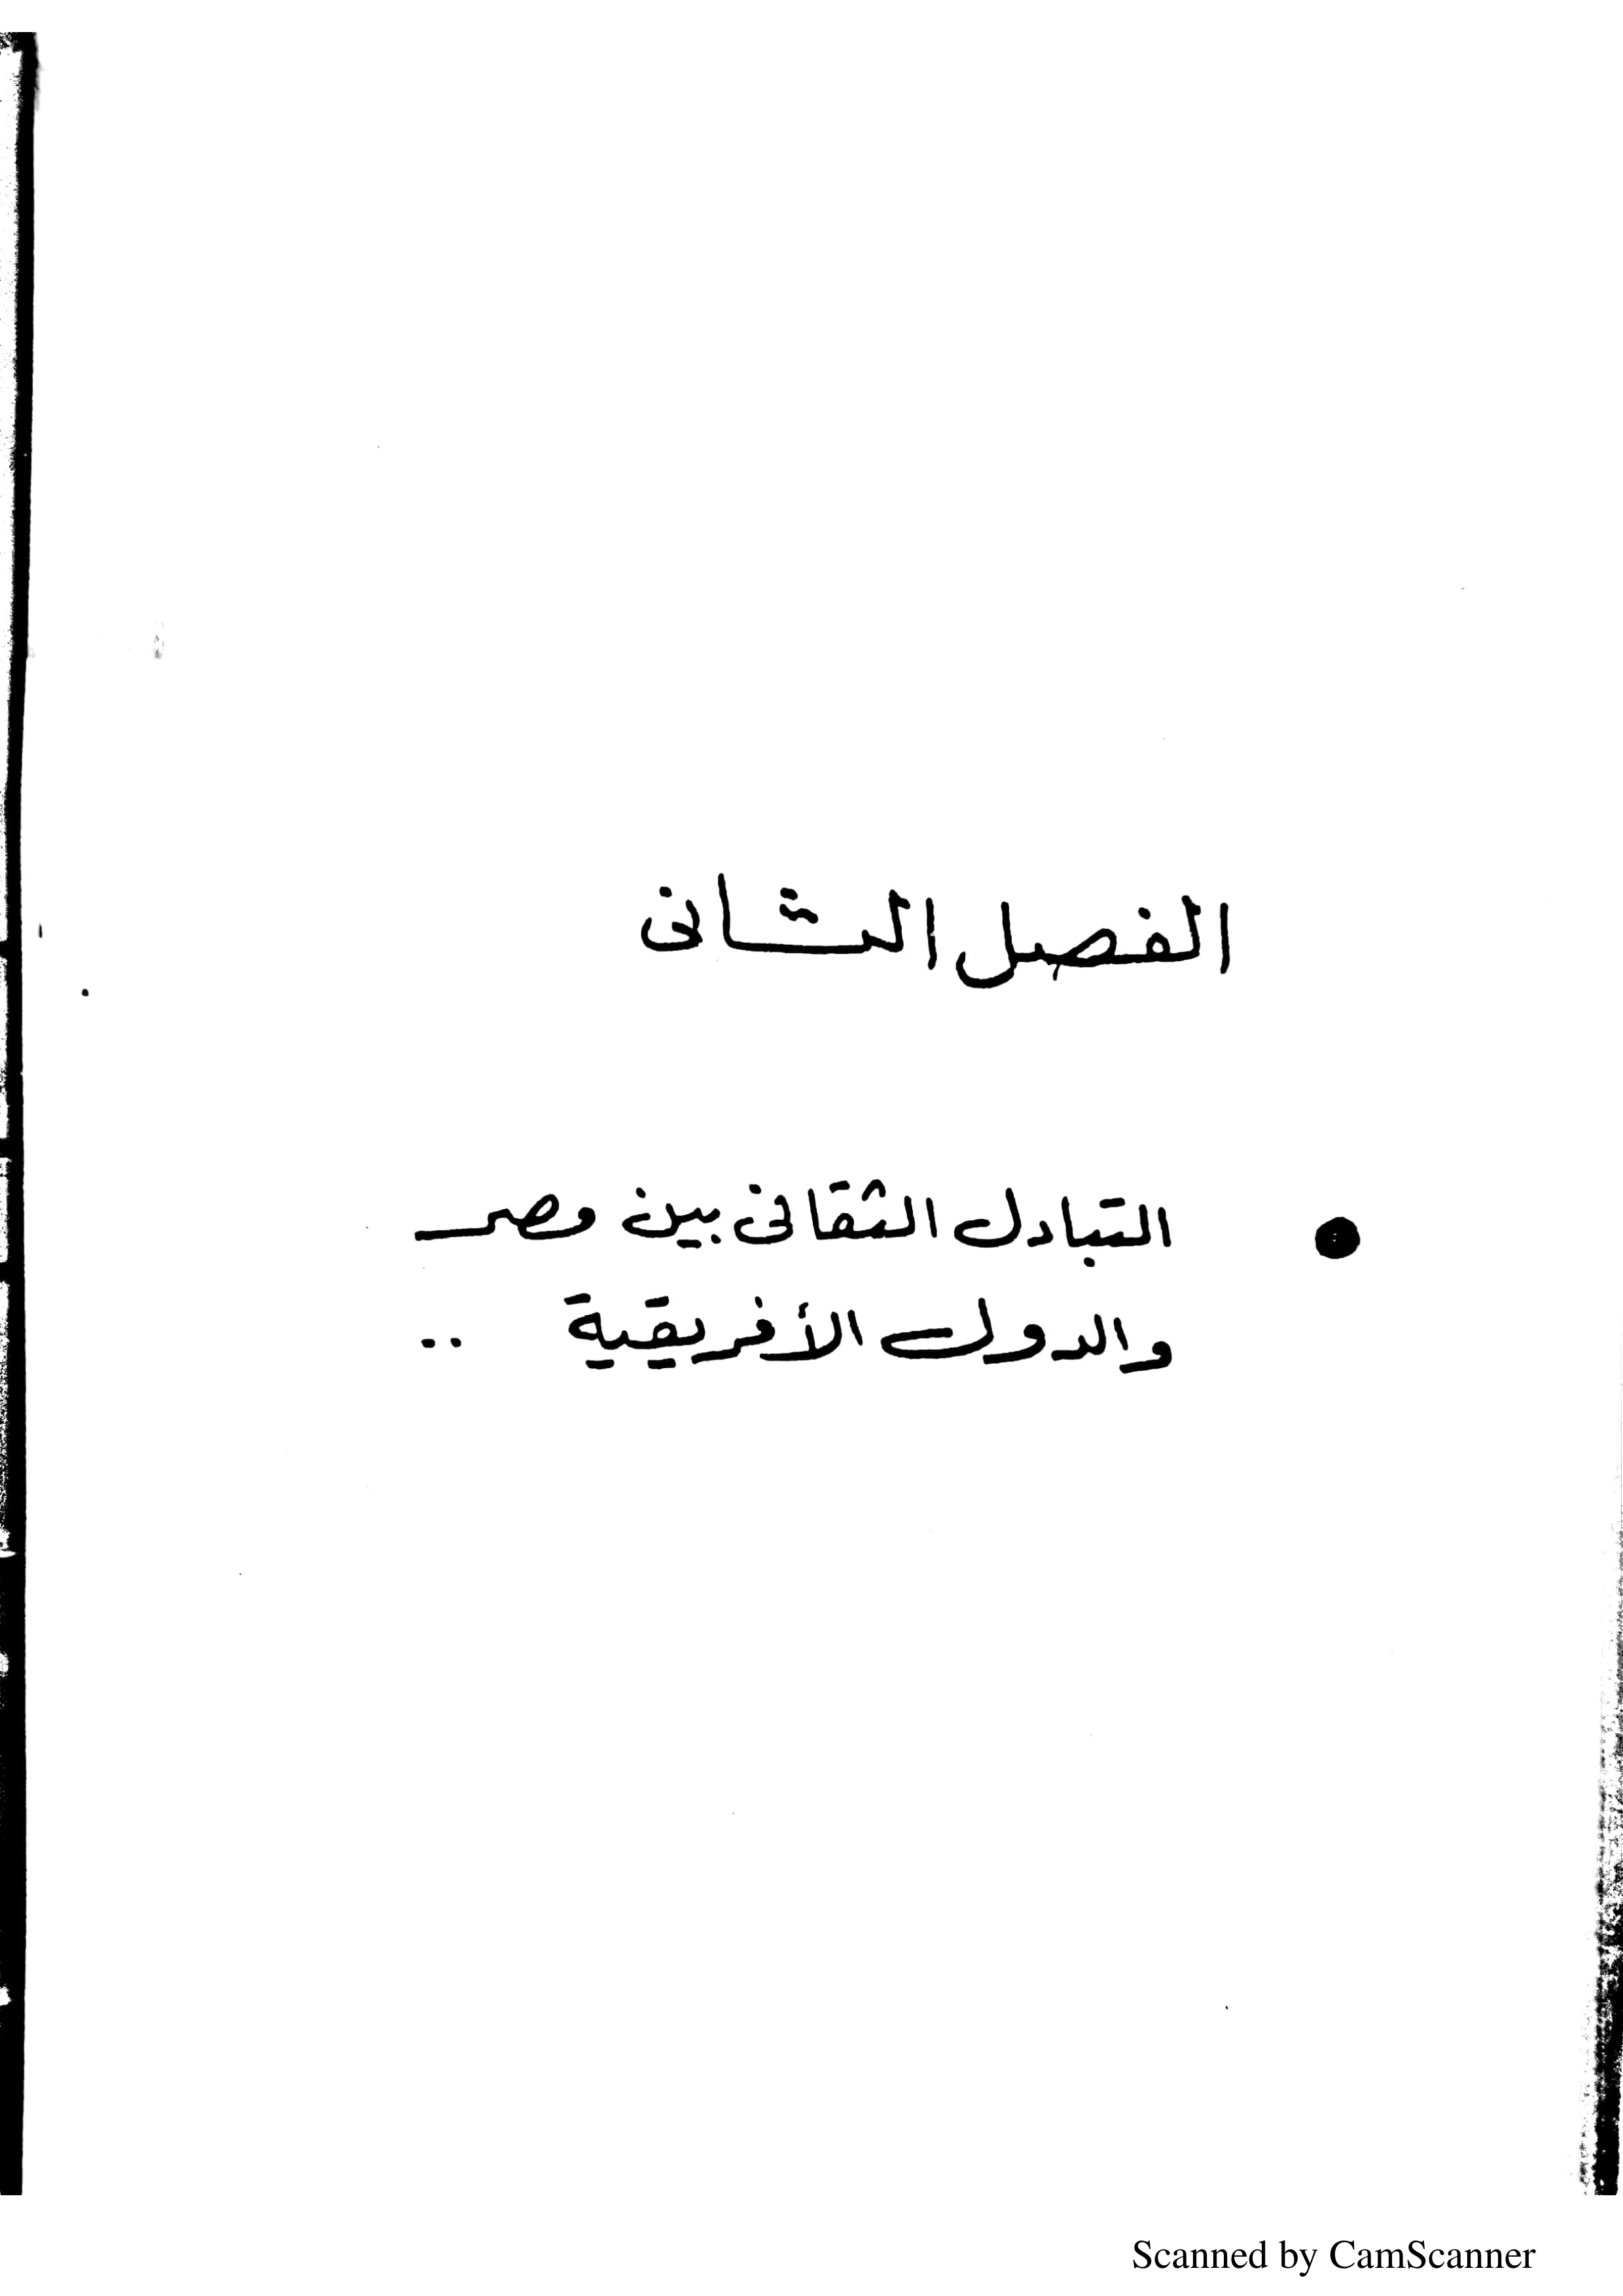 الفصل الثانى
● التبادل الثقافى بين مصر
والدول الأفريقية ..
Scanned by CamScanner